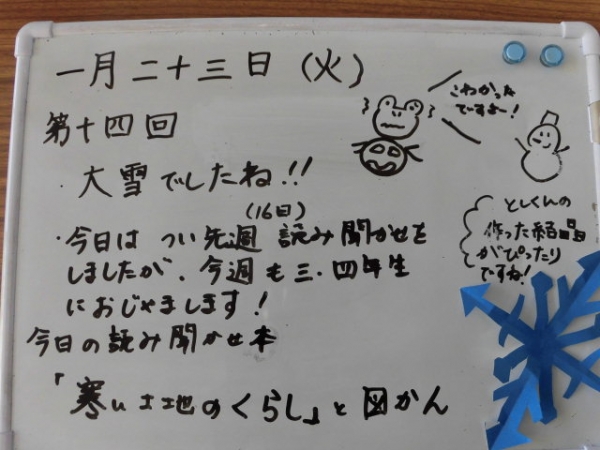 一月二十三日（火）
第十四回
・大雪でしたね!!
（16日）
・今日は つい先週 読み聞かせを
しましたが、今週も三・四年生
におじゃまします！
今日の読み聞かせ本
「寒い土地のくらし」と図かん
こわかった
ですよー！
としくんの
作った結晶
がぴったり
ですね！